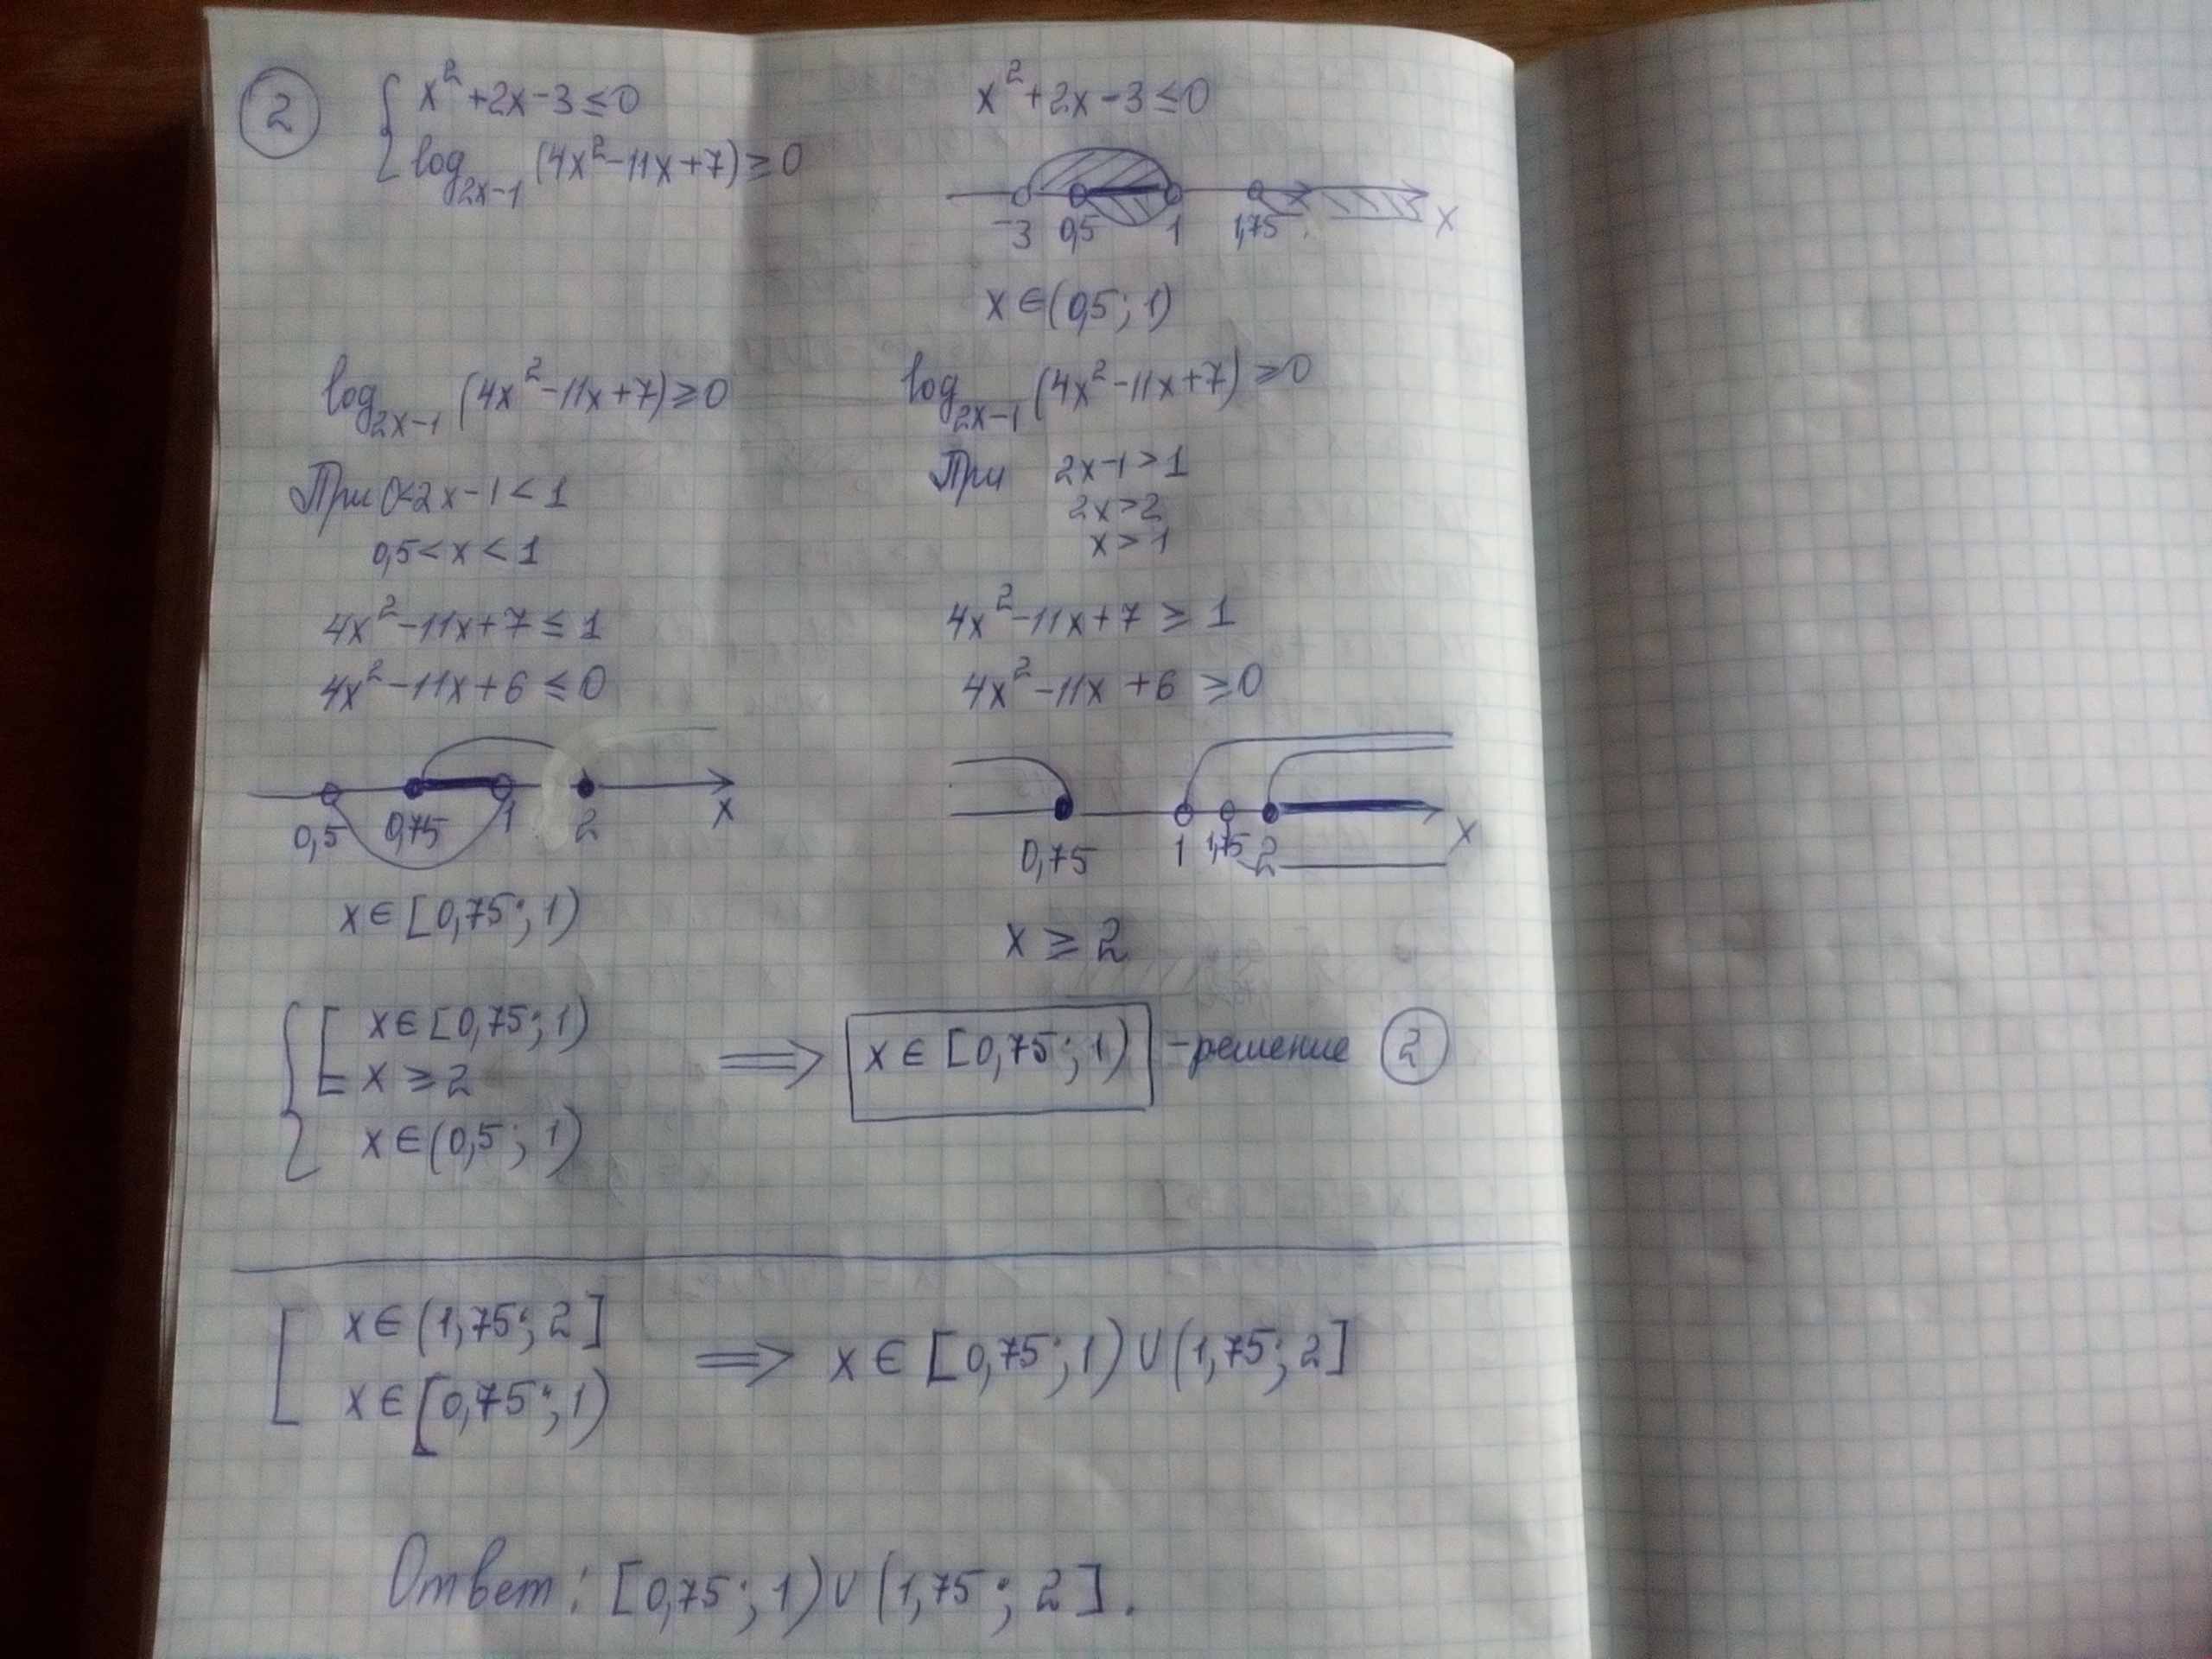 2
x²+2x-3≤0
log₂ₓ₋₁(4x²-11x+7)≥0
x²+2x-3≤0
-3 0,5 1 1,75 x
x∈(0,5; 1)
log₂ₓ₋₁(4x²-11x+7)≥0
При 0<2x-1<1
0,5<x<1
4x²-11x+7≤1
4x²-11x+6≤0
0,5 0,75 1 2 x
x∈[0,75; 1)
log₂ₓ₋₁(4x²-11x+7)≥0
При 2x-1>1
2x>2
x>1
4x²-11x+7≥1
4x²-11x+6≥0
0,75 1 1,75 2 x
x≥2
{ [ x∈[0,75; 1)
x≥2
x∈(0,5; 1)
⟹ x∈[0,75; 1) -решение 2
[ x∈(1,75; 2]
x∈[0,75; 1)
⟹ x∈[0,75; 1)∪(1,75; 2]
Ответ: [0,75; 1)∪(1,75; 2].